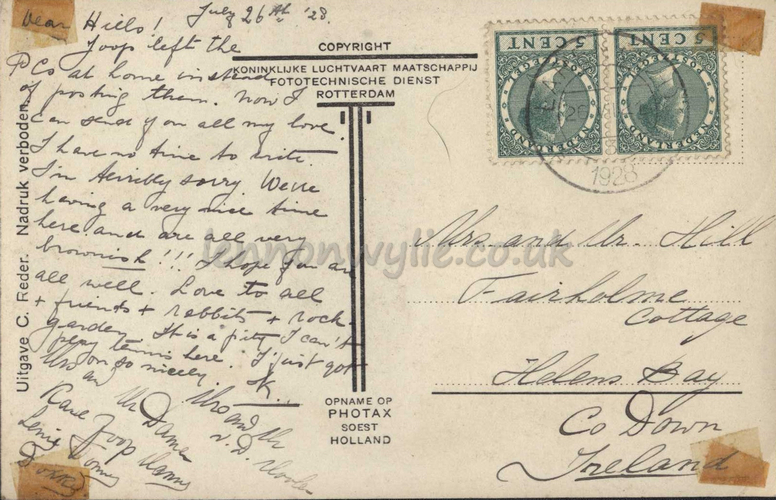 July 26th '28.
Dear Hills!
Joop left the
P Cs at home instead
of posting them. Now I
can send you all my love.
I have no time to write.
I'm terribly sorry. We're
having a very nice time
here and are all very
brownish!!! I hope you are
all well. Love to all
+ friends + rabbits + rock-
garden. It is a pity I can't
play tennis here. I just got
on so nicely.
Mrs and Mr
Joop
Uitgave C. Reder. Nadruk verboden.
COPYRIGHT
KONINKLIJKE LUCHTVAART MAATSCHAPPIJ
FOTOTECHNISCHE DIENST
ROTTERDAM
OPNAME OP
PHOTAX
SOEST
HOLLAND
5 CENT
NEDERLAND
5 CENT
NEDERLAND
1928
Mrs. and Mr. Hill
Fairholme
Cottage
Helens Bay
Co Down
Ireland
lennonwylie.co.uk